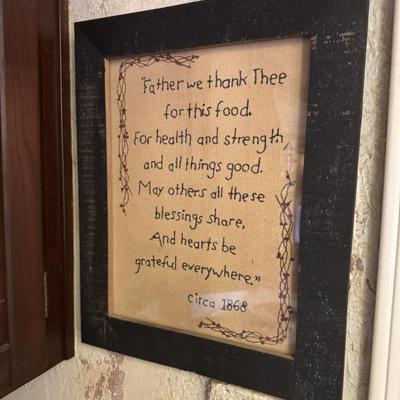 "Father we thank Thee
for this food.
For health and strength
and all things good.
May others all these
blessings share,
And hearts be
grateful everywhere."
circa 1868